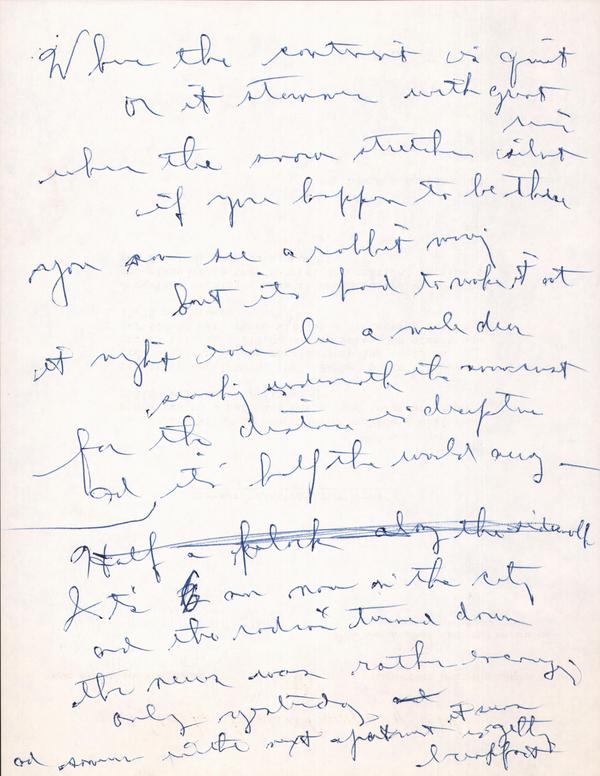 When the continent is quiet
or it stammers with quiet
rain
when the snow stretches silent
if you happen to be there
you can see a rabbit moving
but it's hard to make it out
it might even be a mule deer
searching underneath the snowcrust
for the distance is deceptive
and it's half the world away —
Half a block along the sidewalk
It's 6 am now in the city
and the radio's turned down
the news was rather
only yesterday it seems
and someone in the next apartment is getting
breakfast